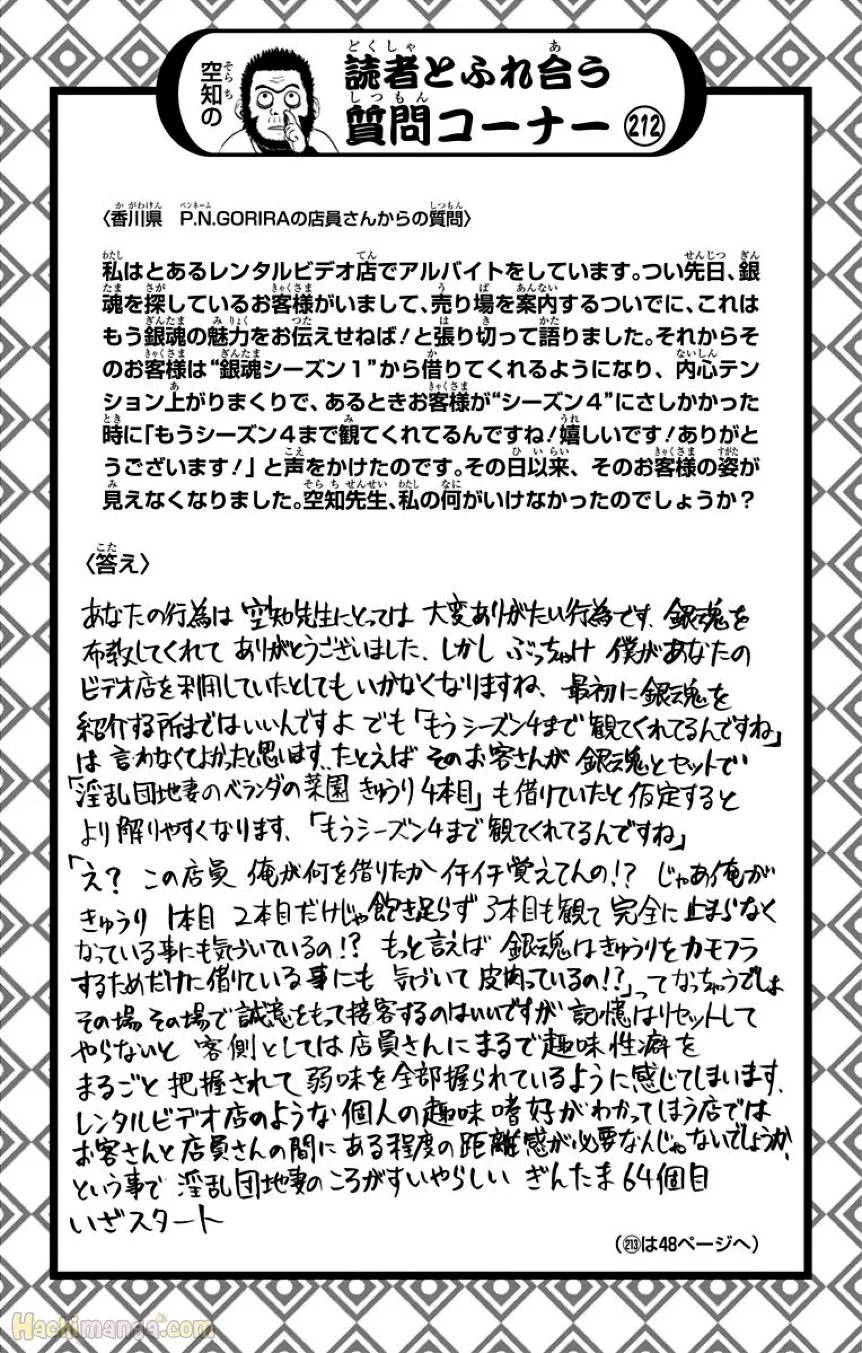 空知の
読者とふれ合う
質問コーナー 212
〈香川県　P.N.GORIRAの店員さんからの質問〉
私はとあるレンタルビデオ店でアルバイトをしています。つい先日、銀
魂を探しているお客様がいまして、売り場を案内するついでに、これは
もう銀魂の魅力をお伝えせねば！と張り切って語りました。それからそ
のお客様は“銀魂シーズン１”から借りてくれるようになり、内心テン
ション上がりまくりで、あるときお客様が“シーズン４”にさしかかった
時に「もうシーズン４まで観てくれてるんですね！嬉しいです！ありがと
うございます！」と声をかけたのです。その日以来、そのお客様の姿が
見えなくなりました。空知先生、私の何がいけなかったのでしょうか？
〈答え〉
あなたの行為は 空知先生にとっては 大変ありがたい行為です、銀魂を
布教してくれて ありがとうございました、しかし ぶっちゃけ 僕があなたの
ビデオ店を利用していたとしてもいかなくなりますね、最初に銀魂を
紹介する所まではいいんですよ でも「もうシーズン4まで観てくれてるんですね」
は 言わなくてよかったと思います、たとえば そのお客さんが 銀魂とセットで
「淫乱団地妻のベランダの菜園 きゅうり4本目」も借りていたと仮定すると
より解りやすくなります、「もうシーズン4まで観てくれてるんですね」
「え？ この店員 俺が何を借りたか イチイチ覚えてんの!? じゃあ俺が
きゅうり 1本目 2本目だけじゃ飽き足らず 3本目も観て 完全に止まらなく
なっている事にも気づいているの!? もっと言えば 銀魂はきゅうりをカモフラ
するためだけに借りている事にも 気づいて皮肉っているの!?」ってなっちゃうでしょ
その場その場で誠意をもって接客するのはいいですが 記憶はリセットして
やらないと 客側としては店員さんにまるで趣味性癖を
まるごと把握されて 弱味を全部握られているように感じてしまいます、
レンタルビデオ店のような個人の趣味嗜好がわかってしまう店では
お客さんと店員さんの間にある程度の距離感が必要なんじゃないでしょうか、
という事で 淫乱団地妻のころがすいやらしい ぎんたま64個目
いざスタート
（213は48ページへ）
Hachimanga.com